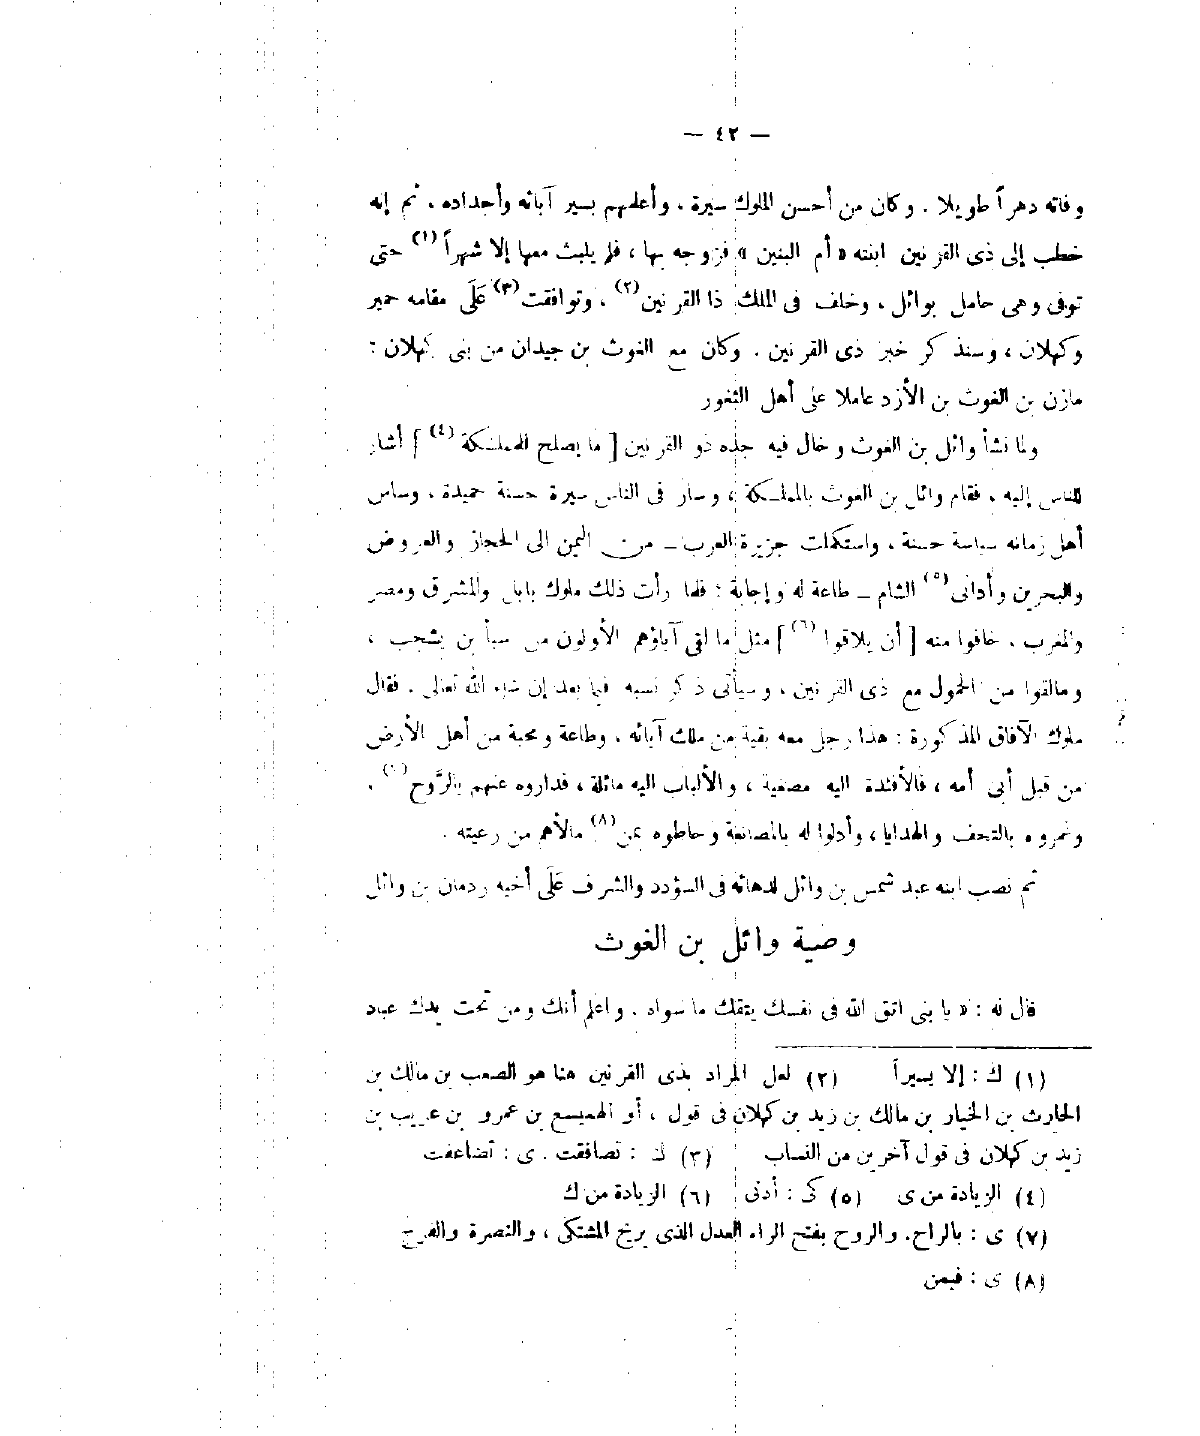 — ٤٢ —
وفاته دهراً طويلا . وكان من أحسن الملوك سيرة . وأعلمهم بسير آبائه وأجداده . ثم إنه
خطب إلى ذى القرنين ابنته « أم البنين » فزوجه بها ، فلم يلبث معها إلا شهراً (١) حتى
توفى وهى حامل بوائل ، وخلف فى الملك ذا القرنين (٢) ، وتوافقت (٣) عَلَى مقامه حمير
وكهلان ، وسنذكر خبر ذى القرنين . وكان مع الغوث بن جيدان من بنى كهلان :
مازن بن الغوث بن الأزد عاملا على أهل الثغور
ولما نشأ وائل بن الغوث وخال فيه جده ذو القرنين [ ما يصلح للمملكة (٤) ] أشار
للناس إليه ، فقام وائل بن الغوث بالمملكة ، وسار فى الناس سيرة حسنة حميدة ، وساس
أهل زمانه سياسة حسنة ، واستكملت جزيرة العرب ــ من اليمن الى الحجاز والعروض
والبحرين وأدانى (٥) الشام ــ طاعة له وإجابة : فلما رأت ذلك ملوك بابل والمشرق ومصر
والمغرب . خافوا منه [ أن يلاقوا (٦) ] مثل ما لقى آباؤهم الأولون من سبأ بن يشجب ،
وما لقوا من الخمول مع ذى القرنين ، وسيأتى ذكر نسبه فيما بعد إن شاء الله تعالى . فقال
ملوك الآفاق المذكورة : هذا رجل معه بقية من ملك آبائه ، وطاعة ومحبة من أهل الأرض
من قبل أبى أمه ، فالأفئدة اليه مصغية ، والألباب اليه مائلة ، فداروه عنهم بالرَّوح (٧) .
وغمروه بالتحف والهدايا ، وأدلوا له بالمصانعة وحاطوه بمن (٨) مالأهم من رعيته .
ثم نصب ابنه عبد شمس بن وائل لدهائه فى السؤدد والشرف عَلَى أخيه ردمان بن وائل
وصية وائل بن الغوث
قال له : « يا بنى اتق الله فى نفسك يتقك ما سواه . واعلم أنك ومن تحت يدك عباد
(١) ك : إلا يسيراً (٢) لعل المراد بذى القرنين هنا هو الصعب بن مالك بن
الحارث بن الخيار بن مالك بن زيد بن كهلان فى قول ، أو الهميسع بن عمرو بن عريب بن
زيد بن كهلان فى قول آخرين من النساب (٣) ك : تصافقت . ى : تضاعفت
(٤) الزيادة من ى (٥) كى : أدنى (٦) الزيادة من ك
(٧) ى : بالراح. والروح بفتح الراء العدل الذى يريح المشتكى ، والنصرة والفرح
(٨) ى : فيمن